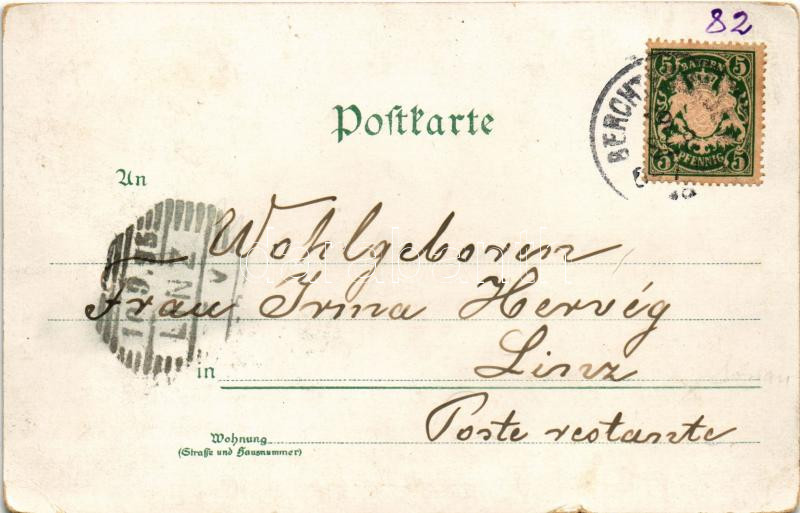 82
5 BAYERN 5
5 PFENNIG 5
BERCHT
Postkarte
An
Wohlgeboren
Frau Irma Hervég
LINZ
in Linz
Poste restante
Wohnung
(Straße und Hausnummer)